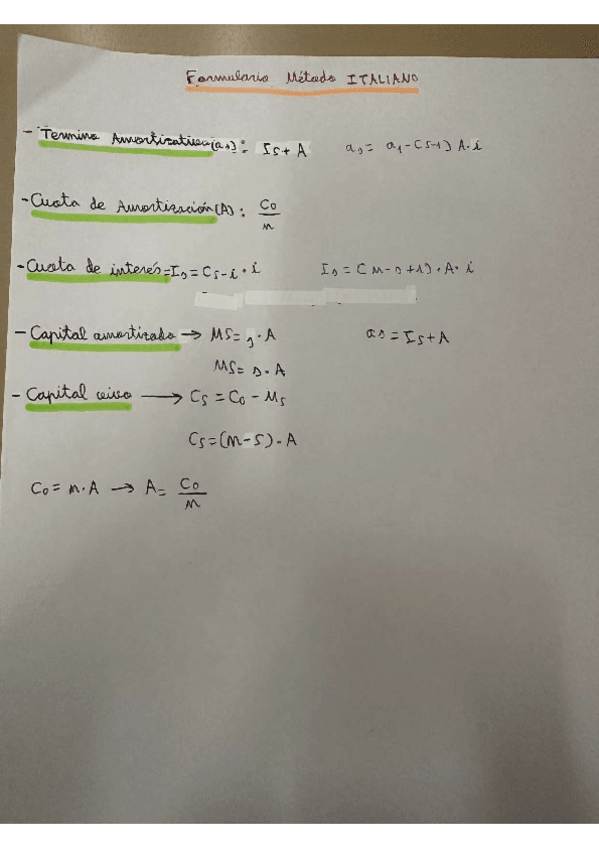 Formulario Método ITALIANO
- Termino Amortizativo(as): Is + A    as = a1 - (s-1) A·i
- Cuota de Amortización(A): Co/n
- Cuota de interés = Is = Cs-i · i    Is = (n-s+1)·A·i
- Capital amortizado → Ms = s·A    as = Is + A
Ms = s·A
- Capital vivo → Cs = Co - Ms
Cs = (n-s)·A
Co = n·A → A = Co/n